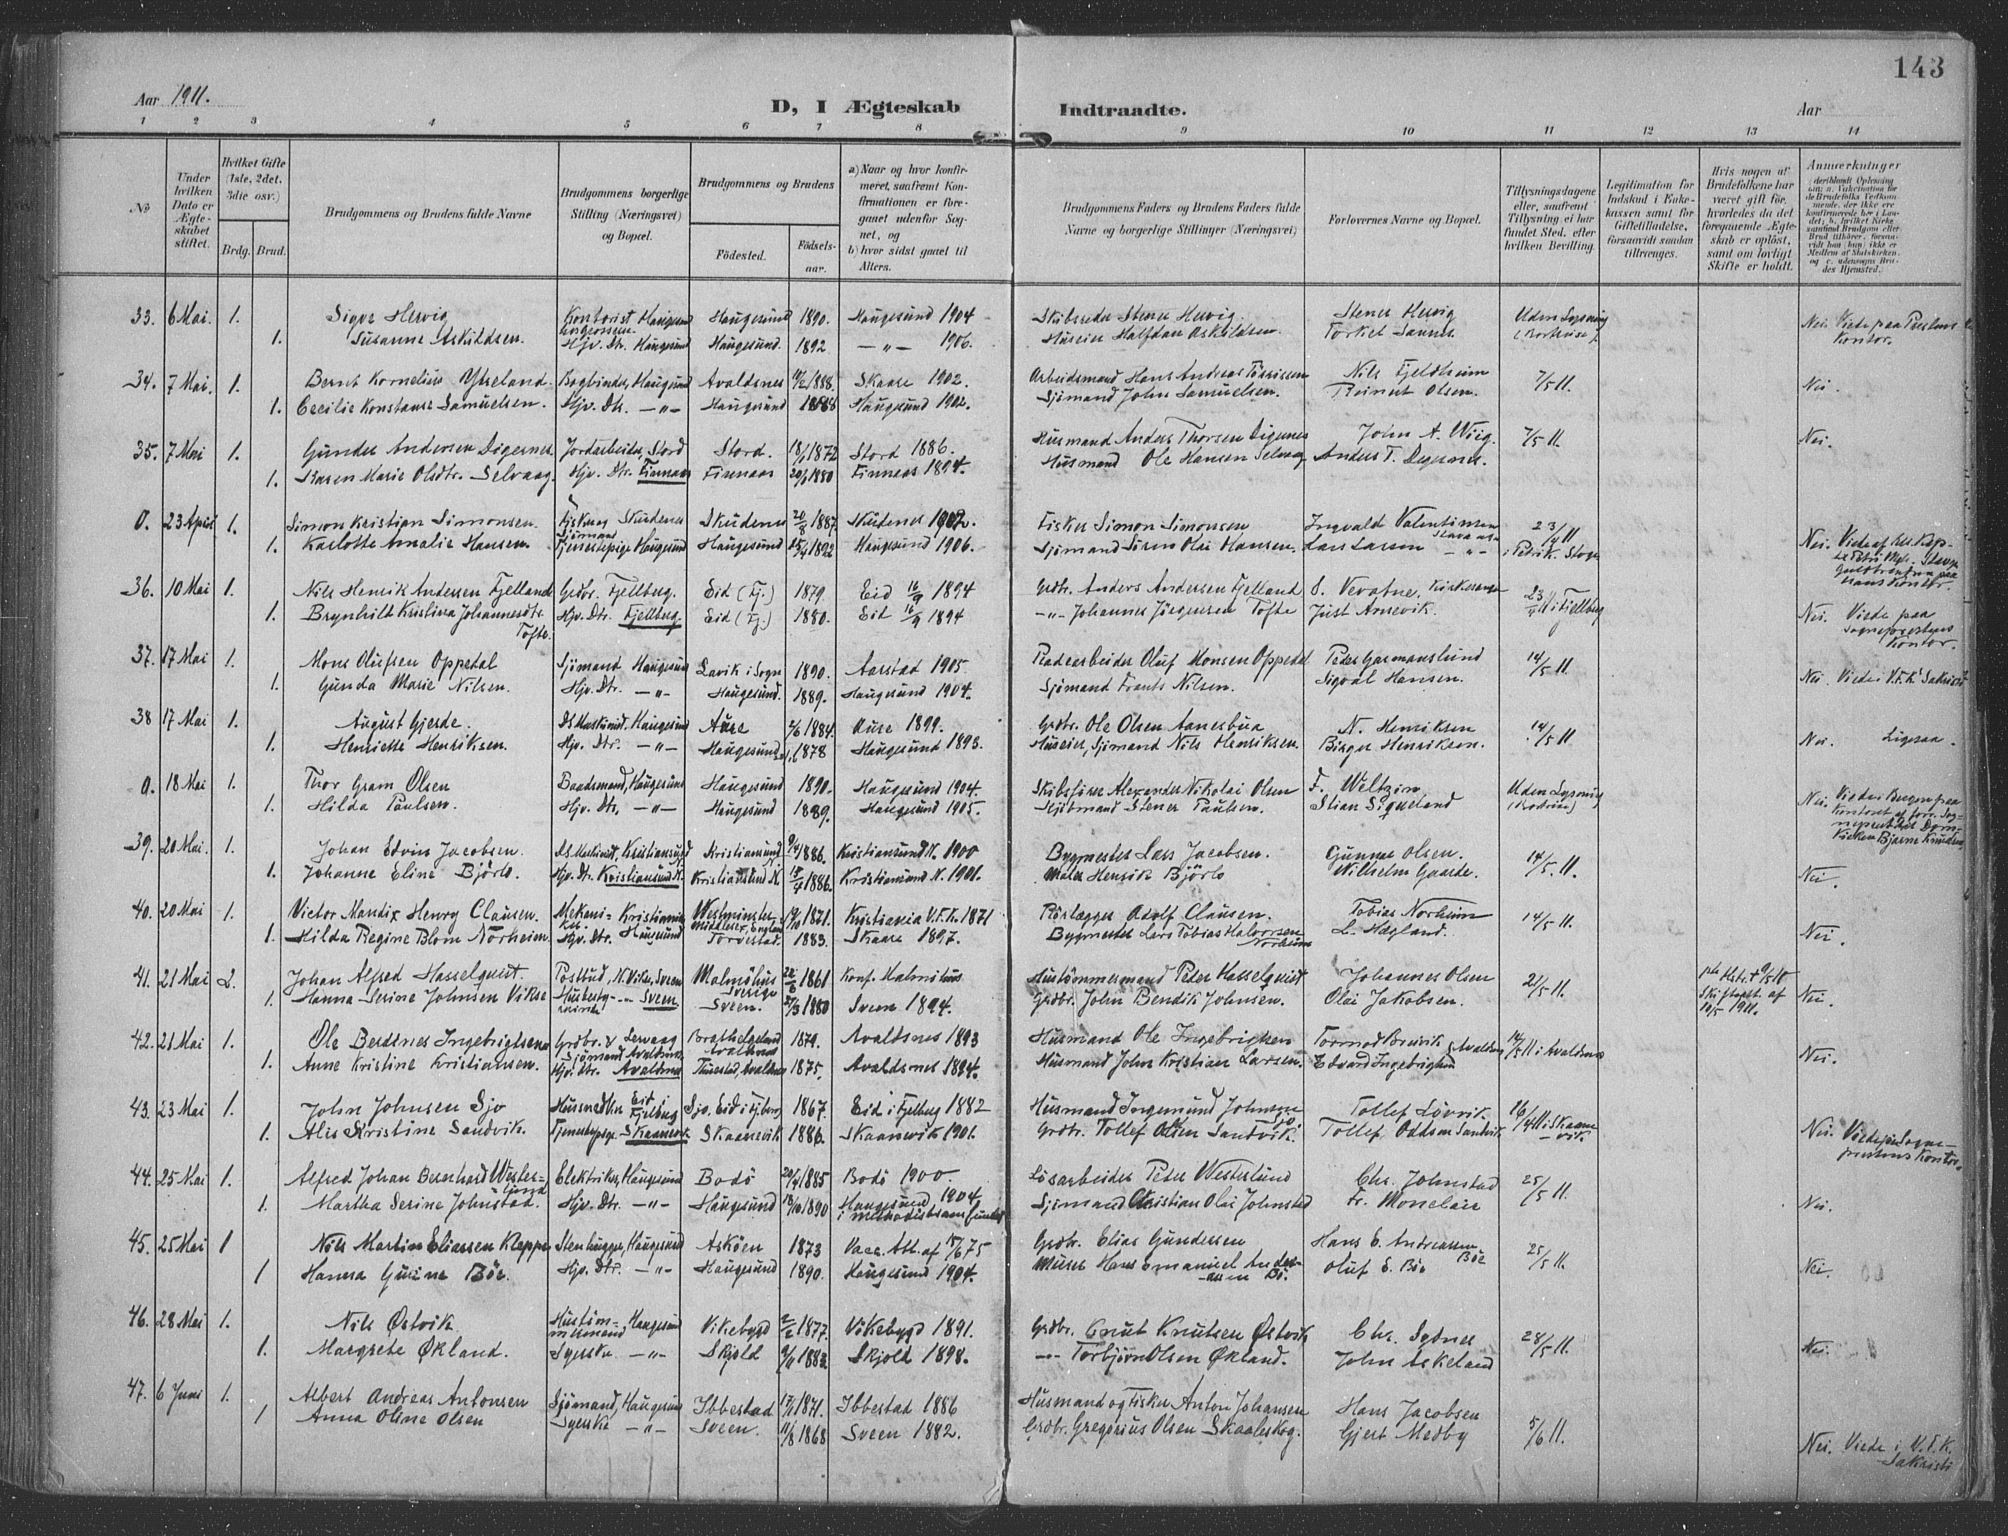 143
Aar 1911.
D, I Ægteskab Indtraadte.
Aar
1 2 3 4 5 6 7 8 9 10 11 12 13 14
No
Under hvilken Dato er Ægteskabet stiftet.
Hvilket Gifte (1ste, 2det, 3die osv.)
Brdg. Brud.
Brudgommens og Brudens fulde Navne
Brudgommens borgerlige Stilling (Næringsvei) og Bopæl.
Brudgommens og Brudens
Fødested.
Fødselsaar.
a) Naar og hvor konfirmeret, saafremt Konfirmationen er foreganet udenfor Sognet, og
b) hvor sidst gaaet til Alters.
Brudgommens Faders og Brudens Faders fulde Navne og borgerlige Stillinger (Næringsvei)
Forlovernes Navne og Bopæl.
Tillysningsdagene eller, saafremt Tillysning ei har fundet Sted, efter hvilken Bevilling.
Legitimation for Indskud i Enkekassen samt for Giftetilladelse, forsaavidt saadan tiltrænges.
Hvis nogen af Brudefolkene har været gift før, hvorledes da det foregaaende Ægteskab er opløst, samt om lovligt Skifte er holdt.
Anmærkninger
33. 6 Mai. 1. Sigur Hervig Kontorist Haugesund Haugesund 1890. Haugesund 1904 Skibsreder Stener Hervig. Stener Hervig Uden Lysning Nei. Viede paa Prestens Kontor.
1. Susanne Askildsen. Hjv. Dtr. Haugesund Haugesund. 1892 —"— 1906. Huseier Halfdan Askildsen. Torkel Sannes
34. 7 Mai. 1. Bernt Kornelius Ytreland. Bogbinder, Haugesund Avaldsnes 1888. Skaare 1902. Arbeidsmand Hans Andreas Tørrissen Nils Fjeldheim 7/5 11. Nei.
1. Cecilie Konstanse Samuelsen. Hjv. Dtr. —"— Haugesund 1888 Haugesund 1902. Sjømand John Samuelsen. Reinert Olsen.
35. 7 Mai 1. Gunder Andersen Digernes. Jordarbeider, Stord Stord. 1872 Stord 1886. Husmand Anders Thorsen Digernes John A. Wiig. 7/5 11. Nei.
1. Karen Marie Olsdtr. Selvaag. Hjv. Dtr. Finnaas Finnaas 1880 Finnaas 1894. Husmand Ole Hansen Selvaag Anders T. Digernes.
0. 23 April 1. Simon Kristian Simonsen. Fisker, Skudenes Skudenes 20/8 1887. Skudenes 1902. Fisker Simon Simonsen Ingvald Valentinsen 23/4 11 Nei.
1. Karlotte Amalie Hansen. Tjenestepige Haugesund Haugesund 25/4 1892 Haugesund 1906. Sjømand Søren Olai Hansen. Lars Larsen —"—
36. 10 Mai 1. Nils Henrik Andersen Fjelland Grdbr. Fjelberg. Eid (Fj.) 1879 Eid 16/9 1894 Grdbr. Anders Andersen Fjelland O. Vevatne, i Fjelberg
1. Brynhilt Kristina Johannesdtr. Tofte. Hjv. Dtr. Fjelberg. Eid (Fj.) 1880. Eid 16/9 1894 —"— Johannes Jørgensen Tofte Just Arnevik. Nei. Viede paa Sogneprestens Kontor.
37. 17 Mai 1. Mons Olufsen Oppedal Sjømand Haugesund Lavik i Sogn 1890. Aarstad 1905 Oluf Monsen Oppedal Peder Garmanslund 14/5 11. Nei. Viede i V.F.K.' Sakristi
1. Gunda Marie Nilsen. Hjv. Dtr. —"— Haugesund. 1889. Haugesund 1904. Sjømand Frants Nilsen. Sigval Hansen.
38 17 Mai 1. August Gjerde. Haugesund Aure 2/6 1884. Aure 1899. Grdbr. Ole Olsen Aanesbua N. Henriksen 14/5 11 Nei. Ligesaa.
1. Henriette Henriksen. Hjv. Dtr. —"— Haugesund 1878 Haugesund 1893. Huseier, Sjømand Nils Henriksen. Birger Henriksen.
0. 18 Mai 1. Thor Gram Olsen Baadsmand, Haugesund Haugesund 1890. Haugesund 1904. Skibsfører Alexander Nikolai Olsen F. Weltzin Uden Lysning Nei.
1. Hilda Paulsen. Hjv. Dtr. —"— Haugesund 1889. Haugesund 1905. Kjøbmand Stener Paulsen. Stian Siqveland
39. 20 Mai. 1. Johan Edvin Jacobsen. Kristiansund Kristiansund 1886. Kristiansund N. 1900 Bygmester Lars Jacobsen. Gunnar Olsen. 14/5. 11.
1. Johanne Eline Bjørlo. Hjv. Dtr. Kristiansund N. Kristiansund N. 1886. Kristiansund N. 1901. Maler Henrik Bjørlo Wilhelm Gaarde. Nei.
40. 20 Mai 1. Victor Mandix Henry Clausen. Mekaniker Kristiania Westminster Middlesex, England 1871. Kristiania V.F.K. 1871 Rørlægger Adolf Clausen. Tobias Norheim 14/5 11.
1. Hilda Regine Blom Norheim. Hjv. Dtr. Haugesund Torvestad. 1883. Skaare 1897. Bygmester Lars Tobias Halvorsen Norheim L. Hagland. Nei.
41. 21 Mai 2. Johan Alfred Hasselquist. Postbud, N. Vikse, Sveen Malmöhus Sverige 1861 Konf. Malmöhus Hustømmermand Peter Hasselquist Johannes Olsen 21/5 11. Nei.
1. Hanna Serine Johnsen Vikse Husbestyrerinde —"— Sveen Sveen. 27/3 1880 Sveen 1894. Grdbr. John Bendik Johnsen. Olai Jakobsen. 1911.
42. 21 Mai 1. Ole Berdines Ingebrigtsen Avaldsnes 1879. Avaldsnes 1893 Husmand Ole Ingebrigtsen Tormod Breivik i Avaldsnes Nei.
1. Anne Kristine Kristiansen. Hjv. Dtr. Avaldsnes Avaldsnes 1875. Avaldsnes 1894. Husmand John Kristian Larsen. Edvard Ingebrigtsen
43. 23 Mai 1. John Johnsen Sjo Eid i Fjelberg Sjo, Eid i Fjelberg 1867. Eid i Fjelberg 1882 Husmand Ingemund Johnsen Sjo Tollef Løvvik. 16/4 11 i Skaanevik
1. Alis Kristine Sandvik. Tjenestepige. Skaanevik Skaanevik 1886. Skaanevik 1901. Grdbr. Tollef Olsen Sandvik. Tollef Oddsen Sandvik Nei. Viede paa Sogneprestens Kontor.
44. 25 Mai 1. Alfred Johan Bernhard Westerlund Elektriker, Haugesund Bodö 20/4 1885 Bodö 1900. Løsarbeider Peter Westerlund Chr. Johnstad 25/5 11.
1. Martha Serine Johnstad. Hjv. Dtr. —"— Haugesund 1890 Haugesund 1904 i methodistsamfundet Sjømand Christian Olai Johnstad Fr. Monclair Nei.
45. 25 Mai 1 Nils Martin Eliassen Kleppe Stenhugger, Haugesund Askøen 1873 Vacc. Att. af 15/6 75 Grdbr. Elias Gundersen Hans E. Andreassen Bøe 25/5 11.
1 Hanna Gurine Bøe. Hjv. Dtr. —"— Haugesund 1890. Haugesund 1904. Murer Hans Emanuel Andreassen Bø. Oluf E. Bøe Nei.
46. 28 Mai 1. Nils Østvik Hustømmermand Haugesund Vikebygd 2/2 1877. Vikebygd 1891. Grdbr. Knut Knutsen Østvik Chr. Sydnes 28/5 11.
1. Margrete Økland. Syerske —"— Skjold 1883 Skjold 1898. —"— Torbjørn Olsen Økland. John Askeland Nei.
47. 6 Juni 1. Albert Andreas Antonsen Sjømand, Haugesund Ibbestad 1871. Ibbestad 1886 Husmand og Fisker Anton Johansen Hans Jacobsen 5/6 11.
1 Anna Oline Olsen Syerske —"— Sveen. 11/8 1868 Sveen 1882. Grdbr. Gregorius Olsen Skaaleskog. Gjert Medby Nei. Viede i V.F.K. Sakristi